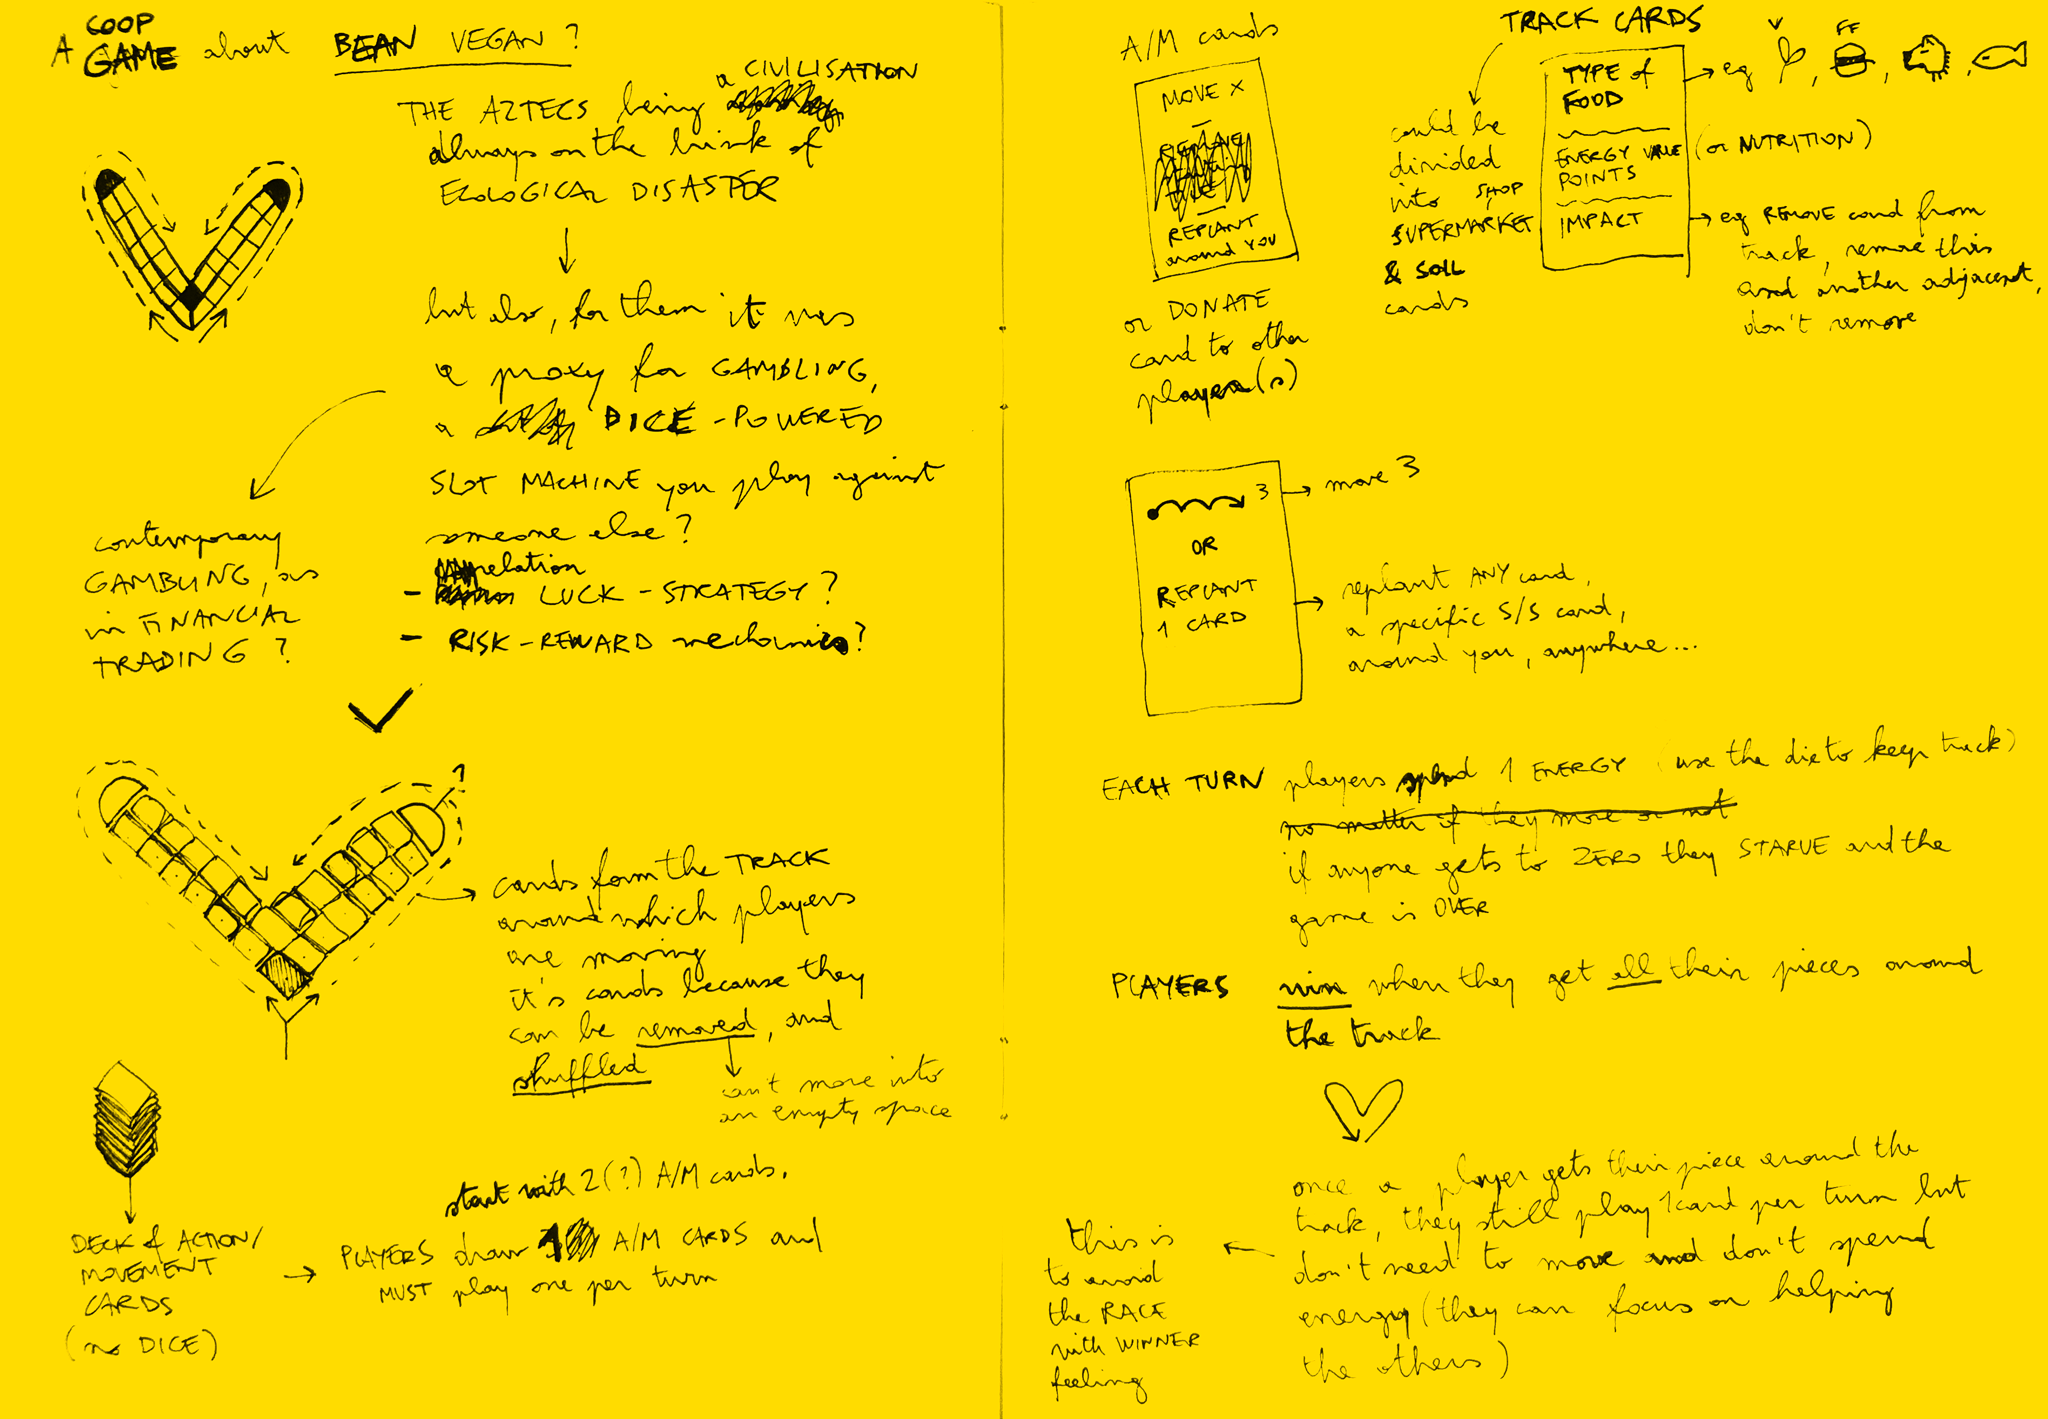 A COOP GAME about BEAN VEGAN?
THE AZTECS being a CIVILISATION
always on the brink of
ECOLOGICAL DISASTER
but also, for them it was
a proxy for GAMBLING,
a DICE-POWERED
SLOT MACHINE you play against
someone else?
relation
- LUCK-STRATEGY?
- RISK-REWARD mechanics?
contemporary
GAMBLING, as
in FINANCIAL
TRADING?
?
cards form the TRACK
around which players
are moving
it's cards because they
can be removed, and
shuffled
can't move into
an empty space
DECK of ACTION/
MOVEMENT
CARDS
(no DICE)
start with 2(?) A/M cards.
PLAYERS draw 1 A/M CARDS and
MUST play one per turn
A/M cards
MOVE X
REPLANT
around you
or DONATE
card to other
player(s)
TRACK CARDS
could be
divided
into SHOP,
SUPERMARKET
& SOIL
cards
TYPE of
FOOD
ENERGY VALUE
POINTS
IMPACT
eg V, FF
(or NUTRITION)
eg REMOVE card from
track, remove this
and another adjacent,
don't remove
3
OR
REPLANT
1 CARD
move 3
replant ANY card,
a specific S/S card,
around you, anywhere...
EACH TURN players spend 1 ENERGY (use the die to keep track)
no matter if they move or not
if anyone gets to ZERO they STARVE and the
game is OVER
PLAYERS win when they get all their pieces around
the track
once a player gets their piece around the
track, they still play 1 card per turn but
don't need to move and don't spend
energy (they can focus on helping
the others)
this is
to avoid
the RACE
with WINNER
feeling